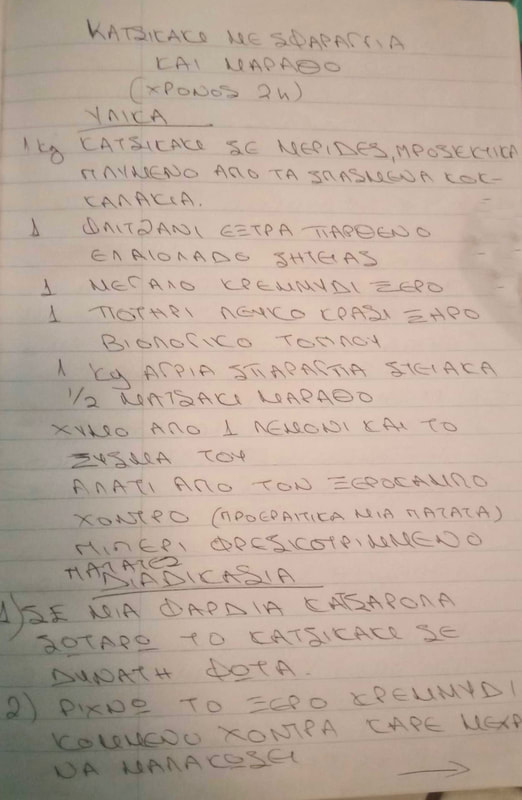 ΚΑΤΣΙΚΑΚΙ ΜΕ ΣΦΑΡΑΓΓΙΑ
ΚΑΙ ΜΑΡΑΘΟ
(ΧΡΟΝΟΣ 2h)
ΥΛΙΚΑ
1 kg ΚΑΤΣΙΚΑΚΙ ΣΕ ΜΕΡΙΔΕΣ, ΠΡΟΣΕΚΤΙΚΑ
ΠΛΥΜΕΝΟ ΑΠΟ ΤΑ ΣΠΑΣΜΕΝΑ ΚΟΚ-
ΚΑΛΑΚΙΑ.
1 ΦΛΙΤΖΑΝΙ ΕΞΤΡΑ ΠΑΡΘΕΝΟ
ΕΛΑΙΟΛΑΔΟ ΣΗΤΕΙΑΣ
1 ΜΕΓΑΛΟ ΚΡΕΜΜΥΔΙ ΞΕΡΟ
1 ΠΟΤΗΡΙ ΛΕΥΚΟ ΚΡΑΣΙ ΞΗΡΟ
ΒΙΟΛΟΓΙΚΟ ΤΟΠΛΟΥ
1 kg ΑΓΡΙΑ ΣΠΑΡΑΓΓΙΑ ΣΤΕΙΑΚΑ
1/2 ΜΑΤΣΑΚΙ ΜΑΡΑΘΟ
ΧΥΜΟ ΑΠΟ 1 ΛΕΜΟΝΙ ΚΑΙ ΤΟ
ΞΥΣΜΑ ΤΟΥ
ΑΛΑΤΙ ΑΠΟ ΤΟΝ ΞΕΡΟΚΑΜΠΟ
ΧΟΝΤΡΟ (ΠΡΟΕΡΑΤΙΚΑ ΜΙΑ ΠΑΤΑΤΑ)
ΠΙΠΕΡΙ ΦΡΕΣΚΟΤΡΙΜΜΕΝΟ
ΠΑΤΑΤΕΣ
ΔΙΑΔΙΚΑΣΙΑ
1) ΣΕ ΜΙΑ ΦΑΡΔΙΑ ΚΑΤΣΑΡΟΛΑ
ΣΟΤΑΡΩ ΤΟ ΚΑΤΣΙΚΑΚΙ ΣΕ
ΔΥΝΑΤΗ ΦΩΤΑ.
2) ΡΙΧΝΩ ΤΟ ΞΕΡΟ ΚΡΕΜΜΥΔΙ
ΚΟΜΜΕΝΟ ΧΟΝΤΡΑ ΚΑΡΕ ΜΕΧΡ
ΝΑ ΜΑΛΑΚΩΣΕΙ